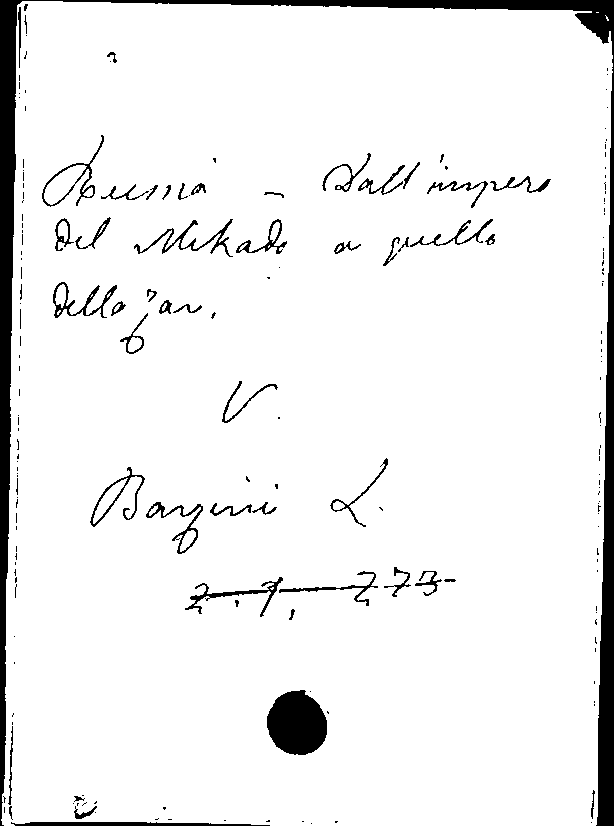 Russia - Dall'impero
del Mikado a quello
dello zar.
V.
Barzini L.
2. 7. 273